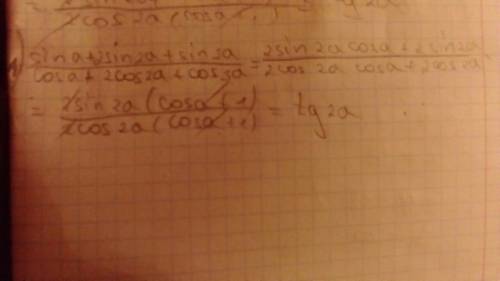 2cos2a(cosa+1) tg2a
sina+2sin2a+sin3a/cosa+2cos2a+cos3a = 2sin2a cosa+2sin2a/2cos2a cosa+2cos2a
= 2sin2a(cosa+1)/2cos2a(cosa+1) = tg2a